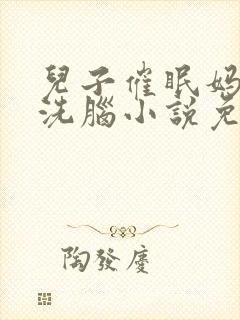 兒子催眠媽
洗腦小説免
陶發慶